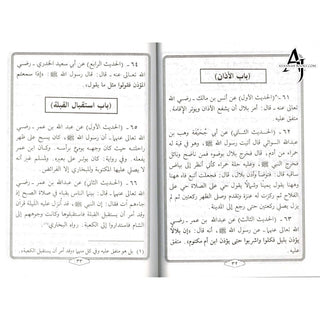 (باب الأذان)
٦١ -"(الحديث الأول) عن أنس بن مالك ـ رضي الله
تعالى عنه ـ قال: أمر بلال أن يشفع الأذان ويوتر الإقامة.
متفق عليه.
٦٢ - (الحديث الثاني) عن أبي جُحَيْفَة وهب بن
عبدالله السوائي قال: أتيت رسول الله ﷺ وهو في قبة له
حمراء من أدم، قال: فخرج بلال بوضوء فمن ناضح ونائل
فخرج النبي ﷺ
قال: فتوضأ وأذن بلال، قال: فجعلت أتتبع فاه ههنا
وههنا يقول يميناً وشمالاً يقول حي على الصلاة حي على
الفلاح ثم ركزت له عنزة وتقدم وصلى الظهر ركعتين ثم لم
يزل يصلي ركعتين حتى رجع إلى المدينة.
٦٣ - (الحديث الثالث) عن عبدالله بن عمر ـ رضي
الله تعالى عنه ـ عن رسول الله ﷺ أنه قال: «إن بلالاً
يؤذن بليل فكلوا واشربوا حتى يؤذن ابن أم مكتوم». متفق
عليه.
٣٢
٦٤ - (الحديث الرابع) عن أبي سعيد الخدري ـ رضي
الله تعالى عنه ـ قال: قال رسول الله ﷺ: «إذا سمعتم
المؤذن فقولوا مثل ما يقول».
(باب استقبال القبلة)
٦٥ - (الحديث الأول) عن عبدالله بن عمر ـ رضي
الله تعالى عنهما ـ أن رسول الله ﷺ كان يسبح على ظهر
راحلته حيث كان وجهه يومئ برأسه. وكان ابن عمر
يفعله. وفي رواية: كان يوتر على بعيره. ولمسلم غير أنه
لا يصلي عليها المكتوبة وللبخاري إلا الفرائض.
٦٦ - (الحديث الثاني) عن عبدالله بن عمر ـ رضي
الله تعالى عنهما ـ قال: بينما الناس بقباء في صلاة الصبح إذ
جاءهم آت فقال: إن النبي ﷺ قد أنزل عليه الليلة قرآن
وقد أمر أن يستقبل القبلة فاستقبلوها وكانت وجوههم إلى
الشام فاستداروا إلى الكعبة.
(١)
٣٣